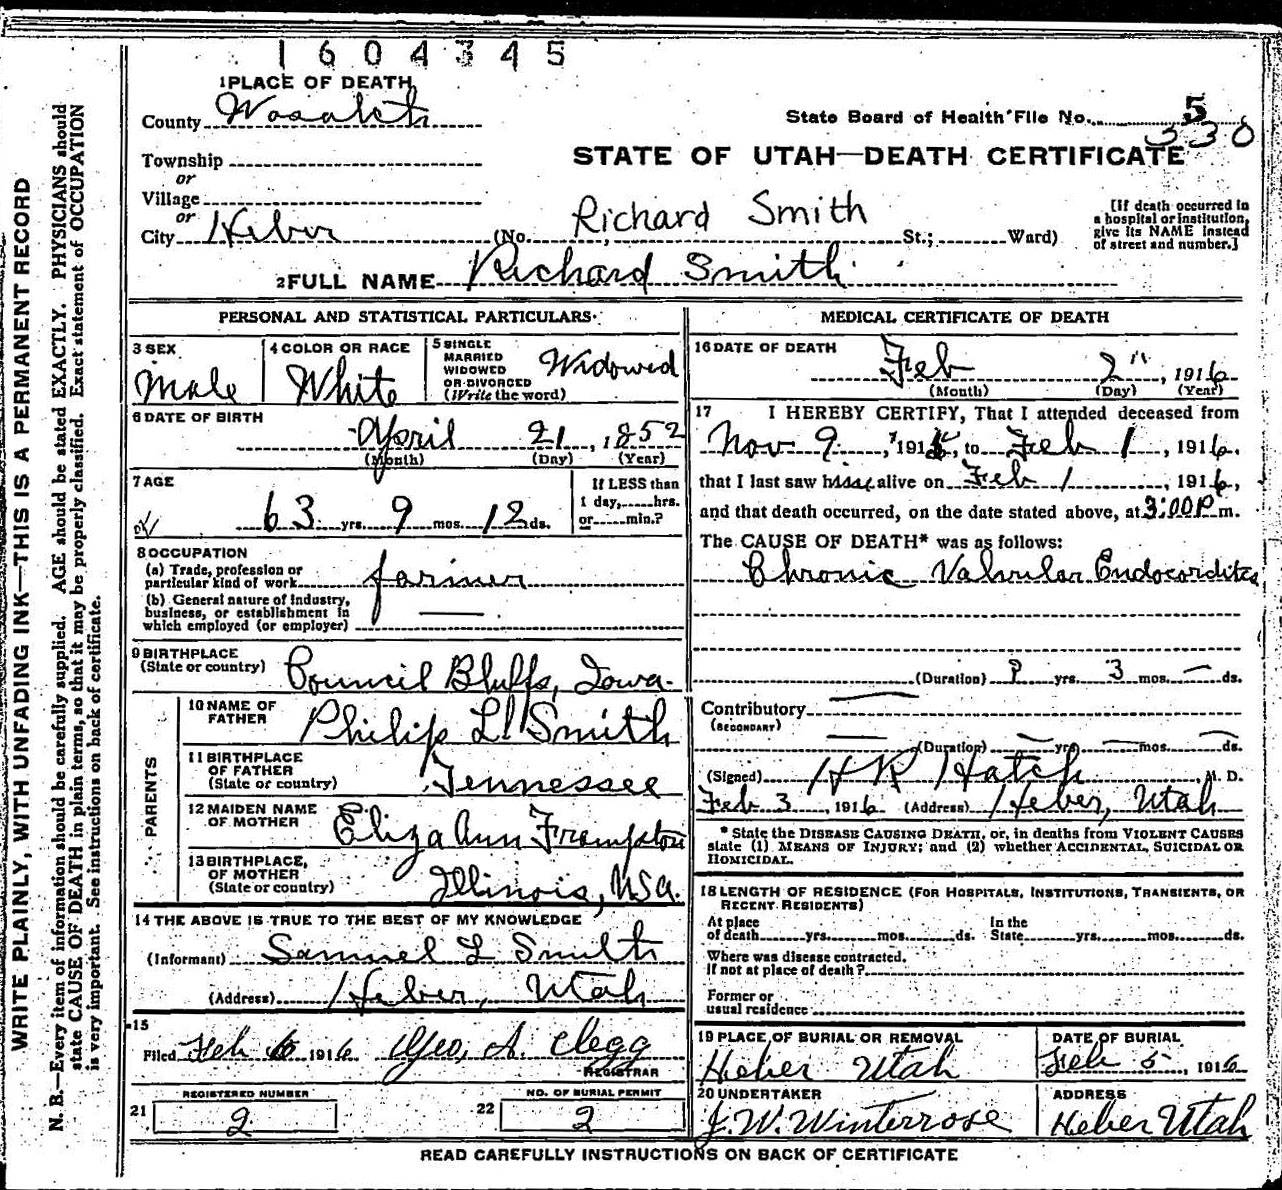 1604345
1 PLACE OF DEATH
County Wasatch
State Board of Health File No. 5
330
Township
or
Village
or
City Heber (No. St.; Ward)
STATE OF UTAH—DEATH CERTIFICATE
Richard Smith
[If death occurred in
a hospital or institution,
give its NAME instead
of street and number.]
2 FULL NAME Richard Smith
PERSONAL AND STATISTICAL PARTICULARS
3 SEX
Male
4 COLOR OR RACE
White
5 SINGLE
MARRIED
WIDOWED
OR DIVORCED
(Write the word)
Widowed
6 DATE OF BIRTH
April 21, 1852
(Month) (Day) (Year)
7 AGE
63 yrs. 9 mos. 12 ds.
If LESS than
1 day, hrs.
or min.?
8 OCCUPATION
(a) Trade, profession or
particular kind of work farmer
(b) General nature of industry,
business, or establishment in
which employed (or employer) —
9 BIRTHPLACE
(State or country) Council Bluffs, Iowa.
PARENTS
10 NAME OF
FATHER Philip L. Smith
11 BIRTHPLACE
OF FATHER
(State or country) Tennessee
12 MAIDEN NAME
OF MOTHER Eliza Ann Frampton
13 BIRTHPLACE,
OF MOTHER
(State or country) Illinois, USA.
14 THE ABOVE IS TRUE TO THE BEST OF MY KNOWLEDGE
(Informant) Samuel L Smith
(Address) Heber, Utah
15
Filed Feb 6 1916 Geo. A. Clegg
REGISTRAR
21 REGISTERED NUMBER
2
22 NO. OF BURIAL PERMIT
2
MEDICAL CERTIFICATE OF DEATH
16 DATE OF DEATH
Feb 2", 1916
(Month) (Day) (Year)
17 I HEREBY CERTIFY, That I attended deceased from
Nov 9, 1915, to Feb 1, 1916.
that I last saw him alive on Feb 1, 1916,
and that death occurred, on the date stated above, at 3:00 P m.
The CAUSE OF DEATH* was as follows:
Chronic Valvular Endocarditis
(Duration) ? yrs. 3 mos. — ds.
Contributory —
(SECONDARY)
— (Duration) — yrs. — mos. — ds.
(Signed) H R Hatch, M. D.
Feb 3, 1916 (Address) Heber, Utah
* State the DISEASE CAUSING DEATH, or, in deaths from VIOLENT CAUSES
state (1) MEANS OF INJURY; and (2) whether ACCIDENTAL, SUICIDAL OR
HOMICIDAL.
18 LENGTH OF RESIDENCE (FOR HOSPITALS, INSTITUTIONS, TRANSIENTS, OR
RECENT RESIDENTS)
At place
of death yrs. mos. ds.
In the
State yrs. mos. ds.
Where was disease contracted,
If not at place of death?
Former or
usual residence
19 PLACE OF BURIAL OR REMOVAL
Heber Utah
DATE OF BURIAL
Feb 5, 1916
20 UNDERTAKER
J. W. Winterrose
ADDRESS
Heber Utah
READ CAREFULLY INSTRUCTIONS ON BACK OF CERTIFICATE
WRITE PLAINLY, WITH UNFADING INK—THIS IS A PERMANENT RECORD
N. B.—Every item of information should be carefully supplied. AGE should be stated EXACTLY. PHYSICIANS should
state CAUSE OF DEATH in plain terms, so that it may be properly classified. Exact statement of OCCUPATION
is very important. See instructions on back of certificate.